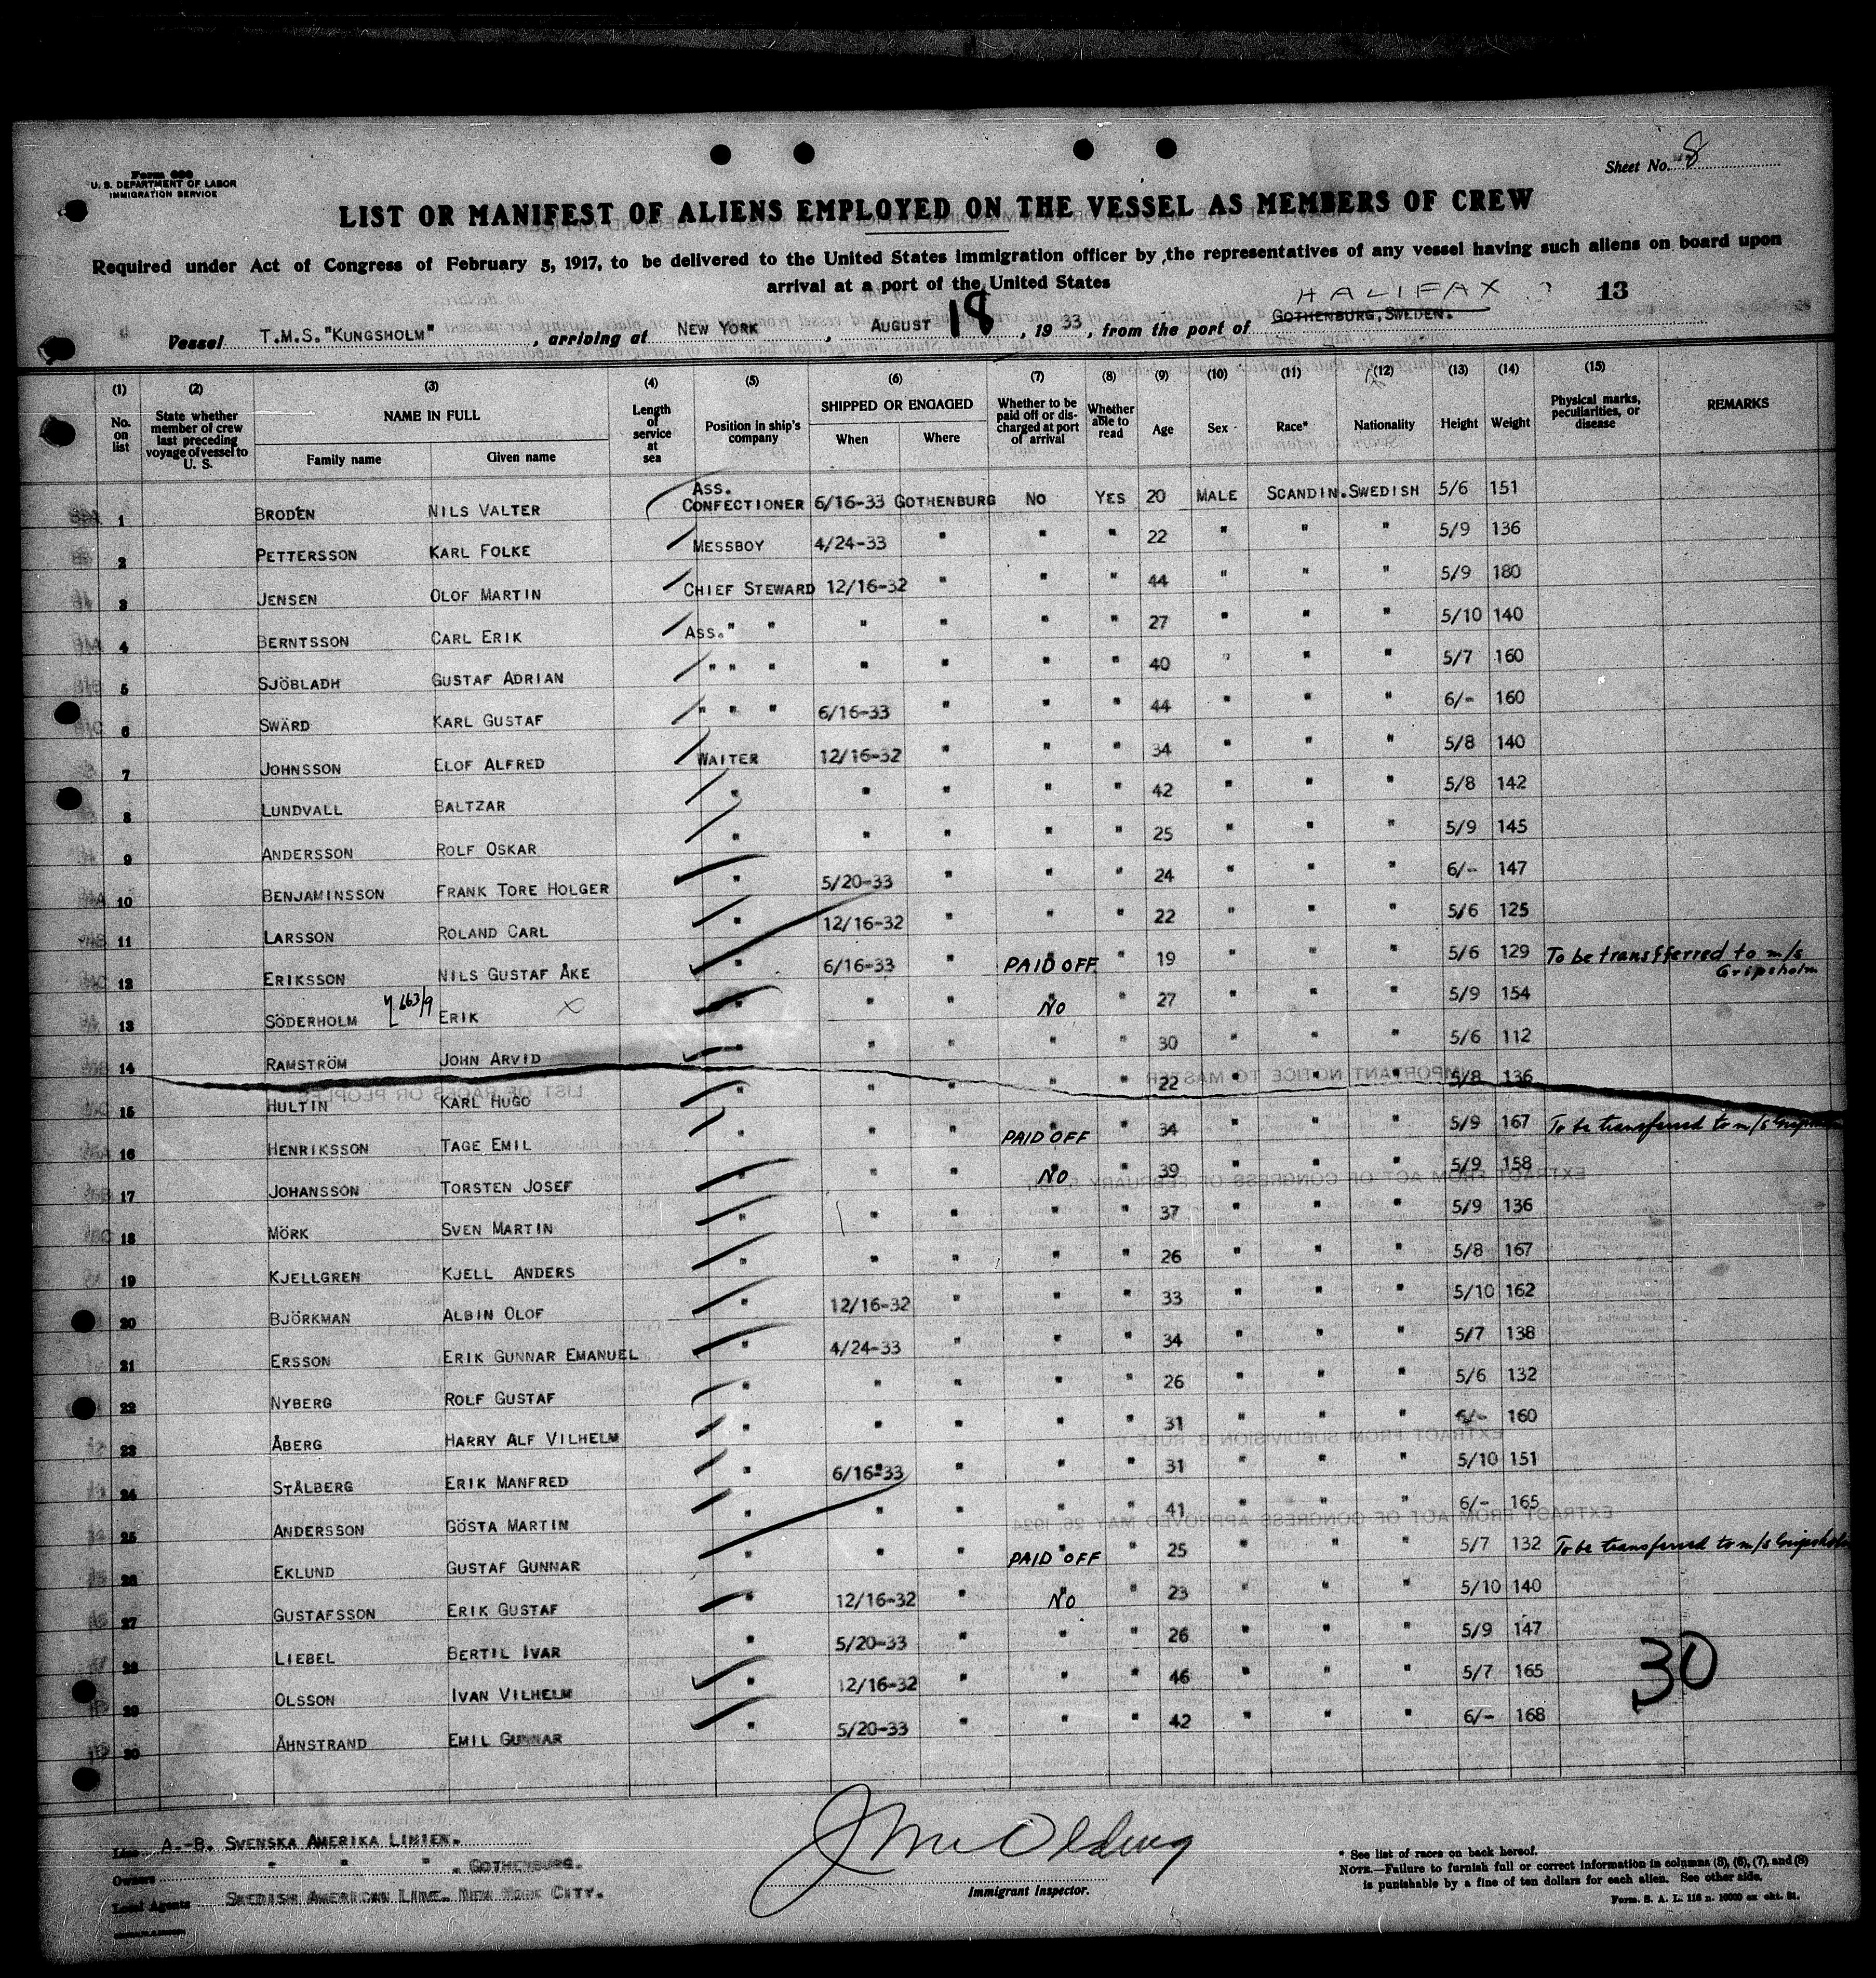 Form 680
U. S. DEPARTMENT OF LABOR
IMMIGRATION SERVICE
Sheet No. 8
LIST OR MANIFEST OF ALIENS EMPLOYED ON THE VESSEL AS MEMBERS OF CREW
Required under Act of Congress of February 5, 1917, to be delivered to the United States immigration officer by the representatives of any vessel having such aliens on board upon
arrival at a port of the United States
HALIFAX 13
Vessel T.M.S. "KUNGSHOLM", arriving at NEW YORK, AUGUST 18, 1933, from the port of GOTHENBURG, SWEDEN.
(1) (2) (3) (4) (5) (6) (7) (8) (9) (10) (11) (12) (13) (14) (15)
No. on list State whether member of crew last preceding voyage of vessel to U. S. NAME IN FULL Length of service at sea Position in ship's company SHIPPED OR ENGAGED Whether to be paid off or discharged at port of arrival Whether able to read Age Sex Race* Nationality Height Weight Physical marks, peculiarities, or disease REMARKS
Family name Given name When Where
1 BRODEN NILS VALTER ASS. CONFECTIONER 6/16-33 GOTHENBURG NO YES 20 MALE SCANDIN. SWEDISH 5/6 151
2 PETTERSSON KARL FOLKE MESSBOY 4/24-33 " " " 22 " " " 5/9 136
3 JENSEN OLOF MARTIN CHIEF STEWARD 12/16-32 " " " 44 " " " 5/9 180
4 BERNTSSON CARL ERIK ASS. " " " " " " 27 " " " 5/10 140
5 SJÖBLADH GUSTAF ADRIAN " " " " " " " 40 " " " 5/7 160
6 SWÄRD KARL GUSTAF " " " 6/16-33 " " " 44 " " " 6/- 160
7 JOHNSSON ELOF ALFRED WAITER 12/16-32 " " " 34 " " " 5/8 140
8 LUNDVALL BALTZAR " " " " " 42 " " " 5/8 142
9 ANDERSSON ROLF OSKAR " " " " " 25 " " " 5/9 145
10 BENJAMINSSON FRANK TORE HOLGER " 5/20-33 " " " 24 " " " 6/- 147
11 LARSSON ROLAND CARL " 12/16-32 " " " 22 " " " 5/6 125
12 ERIKSSON NILS GUSTAF ÅKE " 6/16-33 " PAID OFF " 19 " " " 5/6 129 To be transfferred to m/s Gripsholm
13 SÖDERHOLM ERIK x " " " NO " 27 " " " 5/9 154
14 RAMSTRÖM JOHN ARVID " " " " " 30 " " " 5/6 112
15 HULTIN KARL HUGO " " " " " 22 " " " 5/8 136
16 HENRIKSSON TAGE EMIL " " " PAID OFF " 34 " " " 5/9 167 To be transferred to m/s Gripsholm
17 JOHANSSON TORSTEN JOSEF " " " NO " 39 " " " 5/9 158
18 MÖRK SVEN MARTIN " " " " " 37 " " " 5/9 136
19 KJELLGREN KJELL ANDERS " " " " " 26 " " " 5/8 167
20 BJÖRKMAN ALBIN OLOF " 12/16-32 " " " 33 " " " 5/10 162
21 ERSSON ERIK GUNNAR EMANUEL " 4/24-33 " " " 34 " " " 5/7 138
22 NYBERG ROLF GUSTAF " " " " " 26 " " " 5/6 132
23 ÅBERG HARRY ALF VILHELM " " " " " 31 " " " 6/- 160
24 STÅLBERG ERIK MANFRED " 6/16-33 " " " 31 " " " 5/10 151
25 ANDERSSON GÖSTA MARTIN " " " " " 41 " " " 6/- 165
26 EKLUND GUSTAF GUNNAR " " " PAID OFF " 25 " " " 5/7 132 To be transferred to m/s Gripsholm
27 GUSTAFSSON ERIK GUSTAF " 12/16-32 " NO " 23 " " " 5/10 140
28 LIEBEL BERTIL IVAR " 5/20-33 " " " 26 " " " 5/9 147
29 OLSSON IVAN VILHELM " 12/16-32 " " " 46 " " " 5/7 165
30 ÅHNSTRAND EMIL GUNNAR " 5/20-33 " " " 42 " " " 6/- 168
30
Line A.-B. SVENSKA AMERIKA LINIEN.
Owners " " " GOTHENBURG.
Local Agents SWEDISH AMERICAN LINE. NEW YORK CITY.
Immigrant Inspector.
* See list of races on back hereof.
NOTE.—Failure to furnish full or correct information in columns (3), (6), (7), and (8)
is punishable by a fine of ten dollars for each alien. See other side.
Form. S. A. L. 116 n. 10000 ex okt. 31.